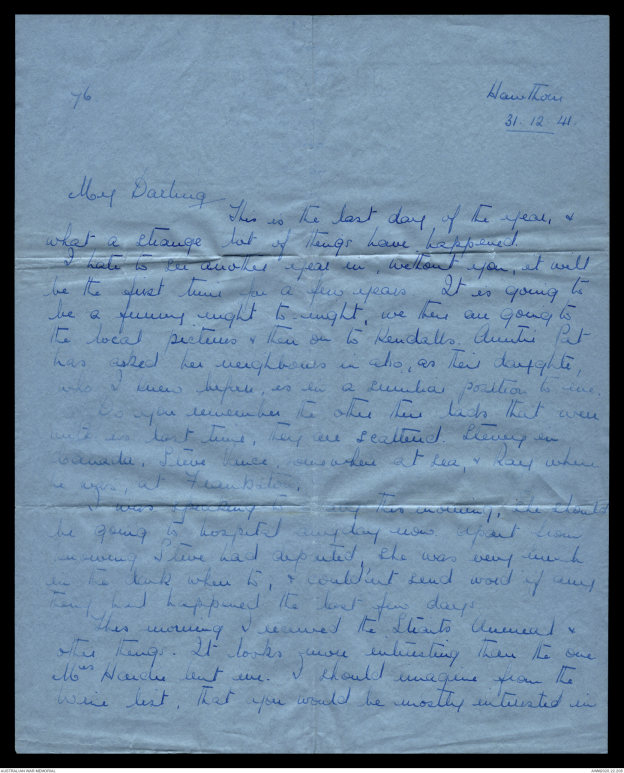 76
Hawthorn
31.12.41.
My Darling
This is the last day of the year, &
what a strange lot of things have happened.
I hate to see another year in, without you, it will
be the first time for a few years. It is going to
be a funny night to-night, we three are going to
the local pictures & then on to Kendalls. Auntie
has asked her neighbours in also, as their daughter,
who I knew before, is in a similar position to me.
Do you remember the other three lads that were
with us last time, they are scattered.
in
Canada, Steve Vance, somewhere at sea, & Ray where
he was, at Frankston.
I was speaking to this morning, she should
be going to hospital anyday now. Apart from
knowing Steve had departed, she was very much
in the dark when to, & couldn't send word if any
thing had happened the last few days.
This morning I received the Straits Annual &
other things. It looks more interesting than the one
Mrs lent me. I should imagine from the
Wine list, that you would be mostly interested in
AUSTRALIAN WAR MEMORIAL